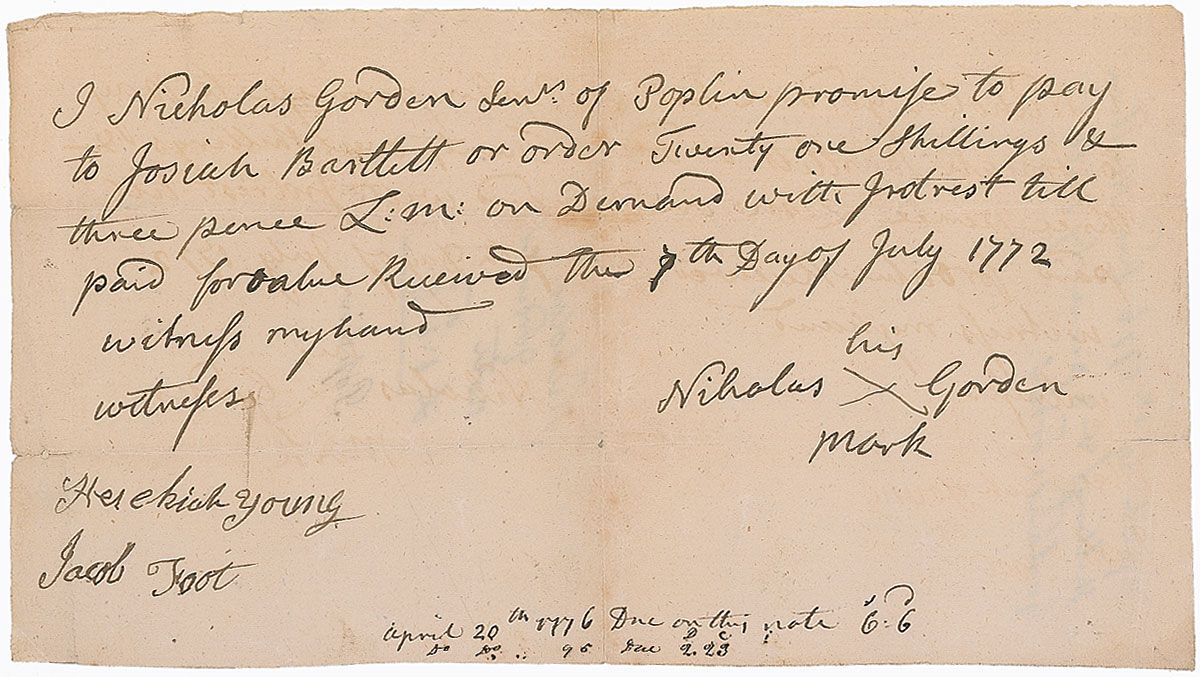 I Nicholas Gorden Senr. of Poplin promise to pay
to Josiah Bartlett or order Twenty one Shillings &
three pence L: M: on Demand with Intrest till
paid for value Received this 7th Day of July 1772
witness my hand
witness
his
Niholas X Gorden
mark
Hesekiah Young
Jacob Foot
april 20th 1776 Due on this note 6s: 6d
Do Do 96 Due 2D 23C